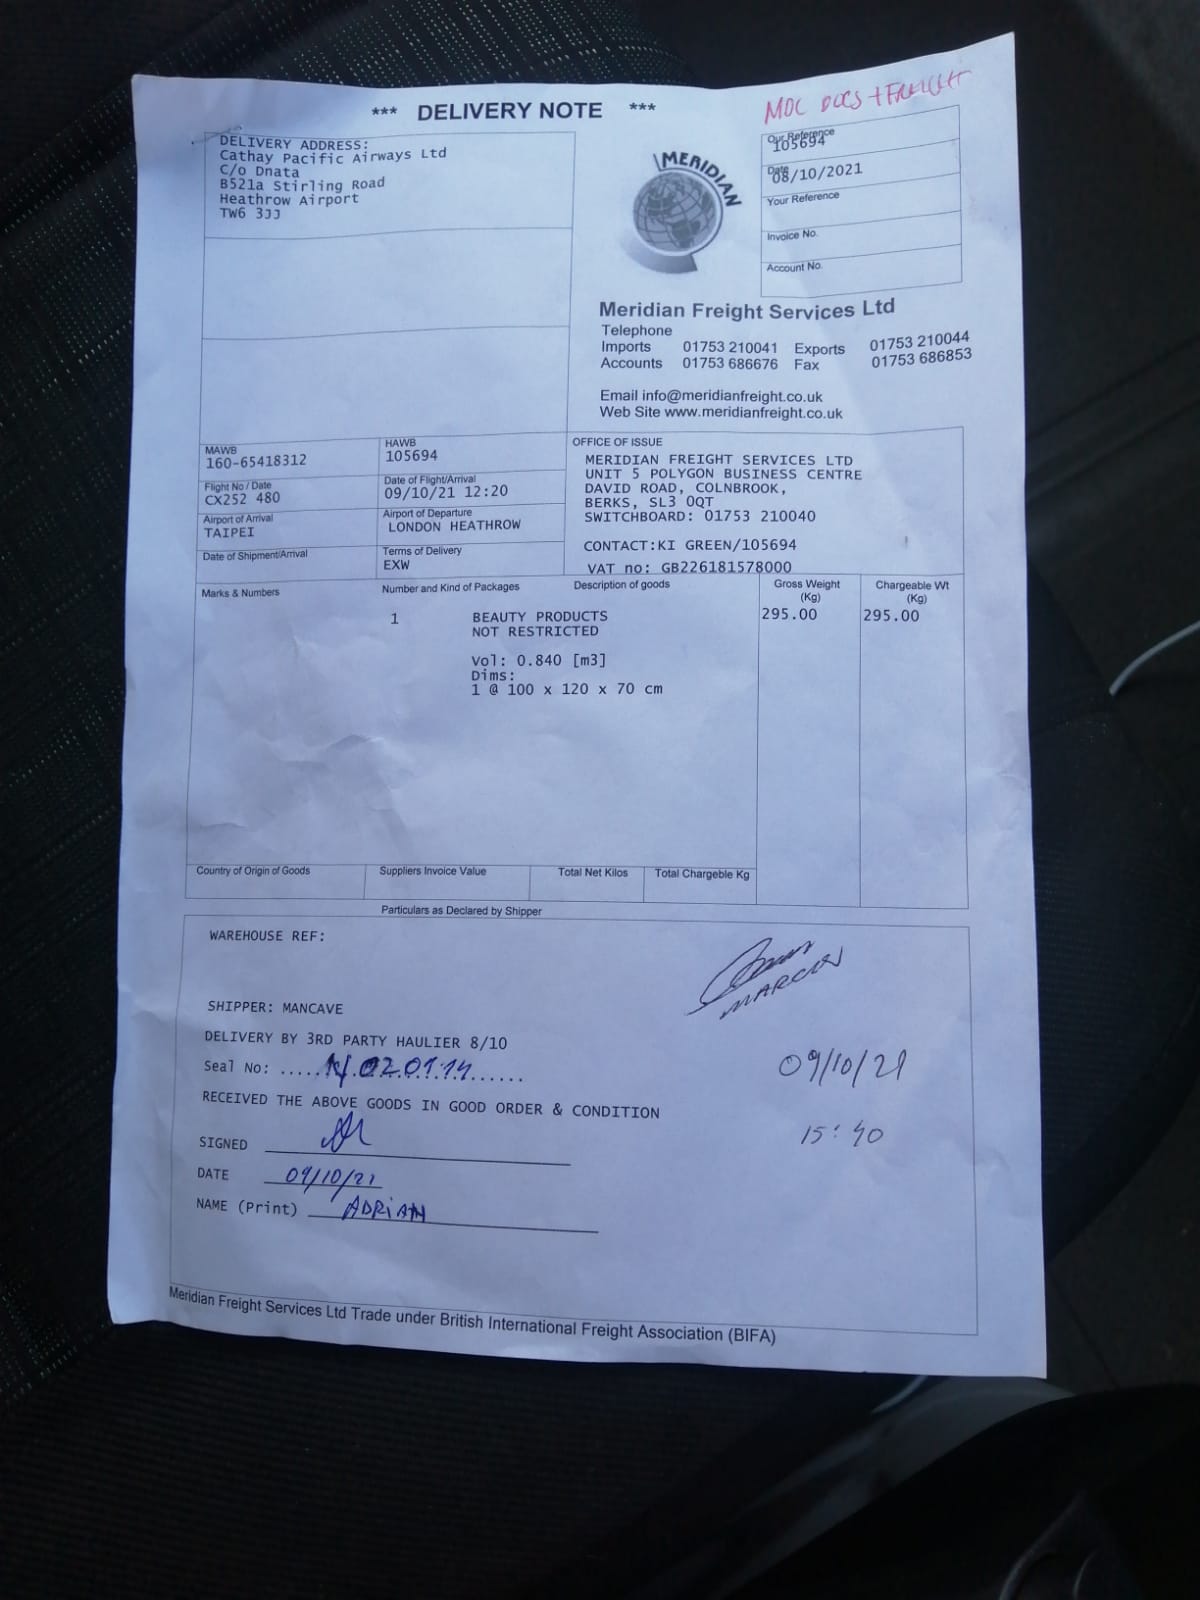 MOC DOCS + FREIGHT
*** DELIVERY NOTE ***
DELIVERY ADDRESS:
Cathay Pacific Airways Ltd
C/o Dnata
B521a Stirling Road
Heathrow Airport
TW6 3JJ
MERIDIAN
Our Reference
105694
Date
08/10/2021
Your Reference
Invoice No.
Account No.
Meridian Freight Services Ltd
Telephone
Imports 01753 210041 Exports 01753 210044
Accounts 01753 686676 Fax 01753 686853
Email info@meridianfreight.co.uk
Web Site www.meridianfreight.co.uk
MAWB
160-65418312
HAWB
105694
Flight No / Date
CX252 480
Date of Flight/Arrival
09/10/21 12:20
Airport of Arrival
TAIPEI
Airport of Departure
LONDON HEATHROW
Date of Shipment/Arrival
Terms of Delivery
EXW
OFFICE OF ISSUE
MERIDIAN FREIGHT SERVICES LTD
UNIT 5 POLYGON BUSINESS CENTRE
DAVID ROAD, COLNBROOK,
BERKS, SL3 0QT
SWITCHBOARD: 01753 210040
CONTACT:KI GREEN/105694
VAT no: GB226181578000
Marks & Numbers Number and Kind of Packages Description of goods Gross Weight (Kg) Chargeable Wt (Kg)
1 BEAUTY PRODUCTS 295.00 295.00
NOT RESTRICTED
Vol: 0.840 [m3]
Dims:
1 @ 100 x 120 x 70 cm
Country of Origin of Goods Suppliers Invoice Value Total Net Kilos Total Chargeble Kg
Particulars as Declared by Shipper
WAREHOUSE REF:
MARCIN
SHIPPER: MANCAVE
DELIVERY BY 3RD PARTY HAULIER 8/10
Seal No:
09/10/21
RECEIVED THE ABOVE GOODS IN GOOD ORDER & CONDITION
15:40
SIGNED
DATE 09/10/21
NAME (Print) ADRIAN
Meridian Freight Services Ltd Trade under British International Freight Association (BIFA)